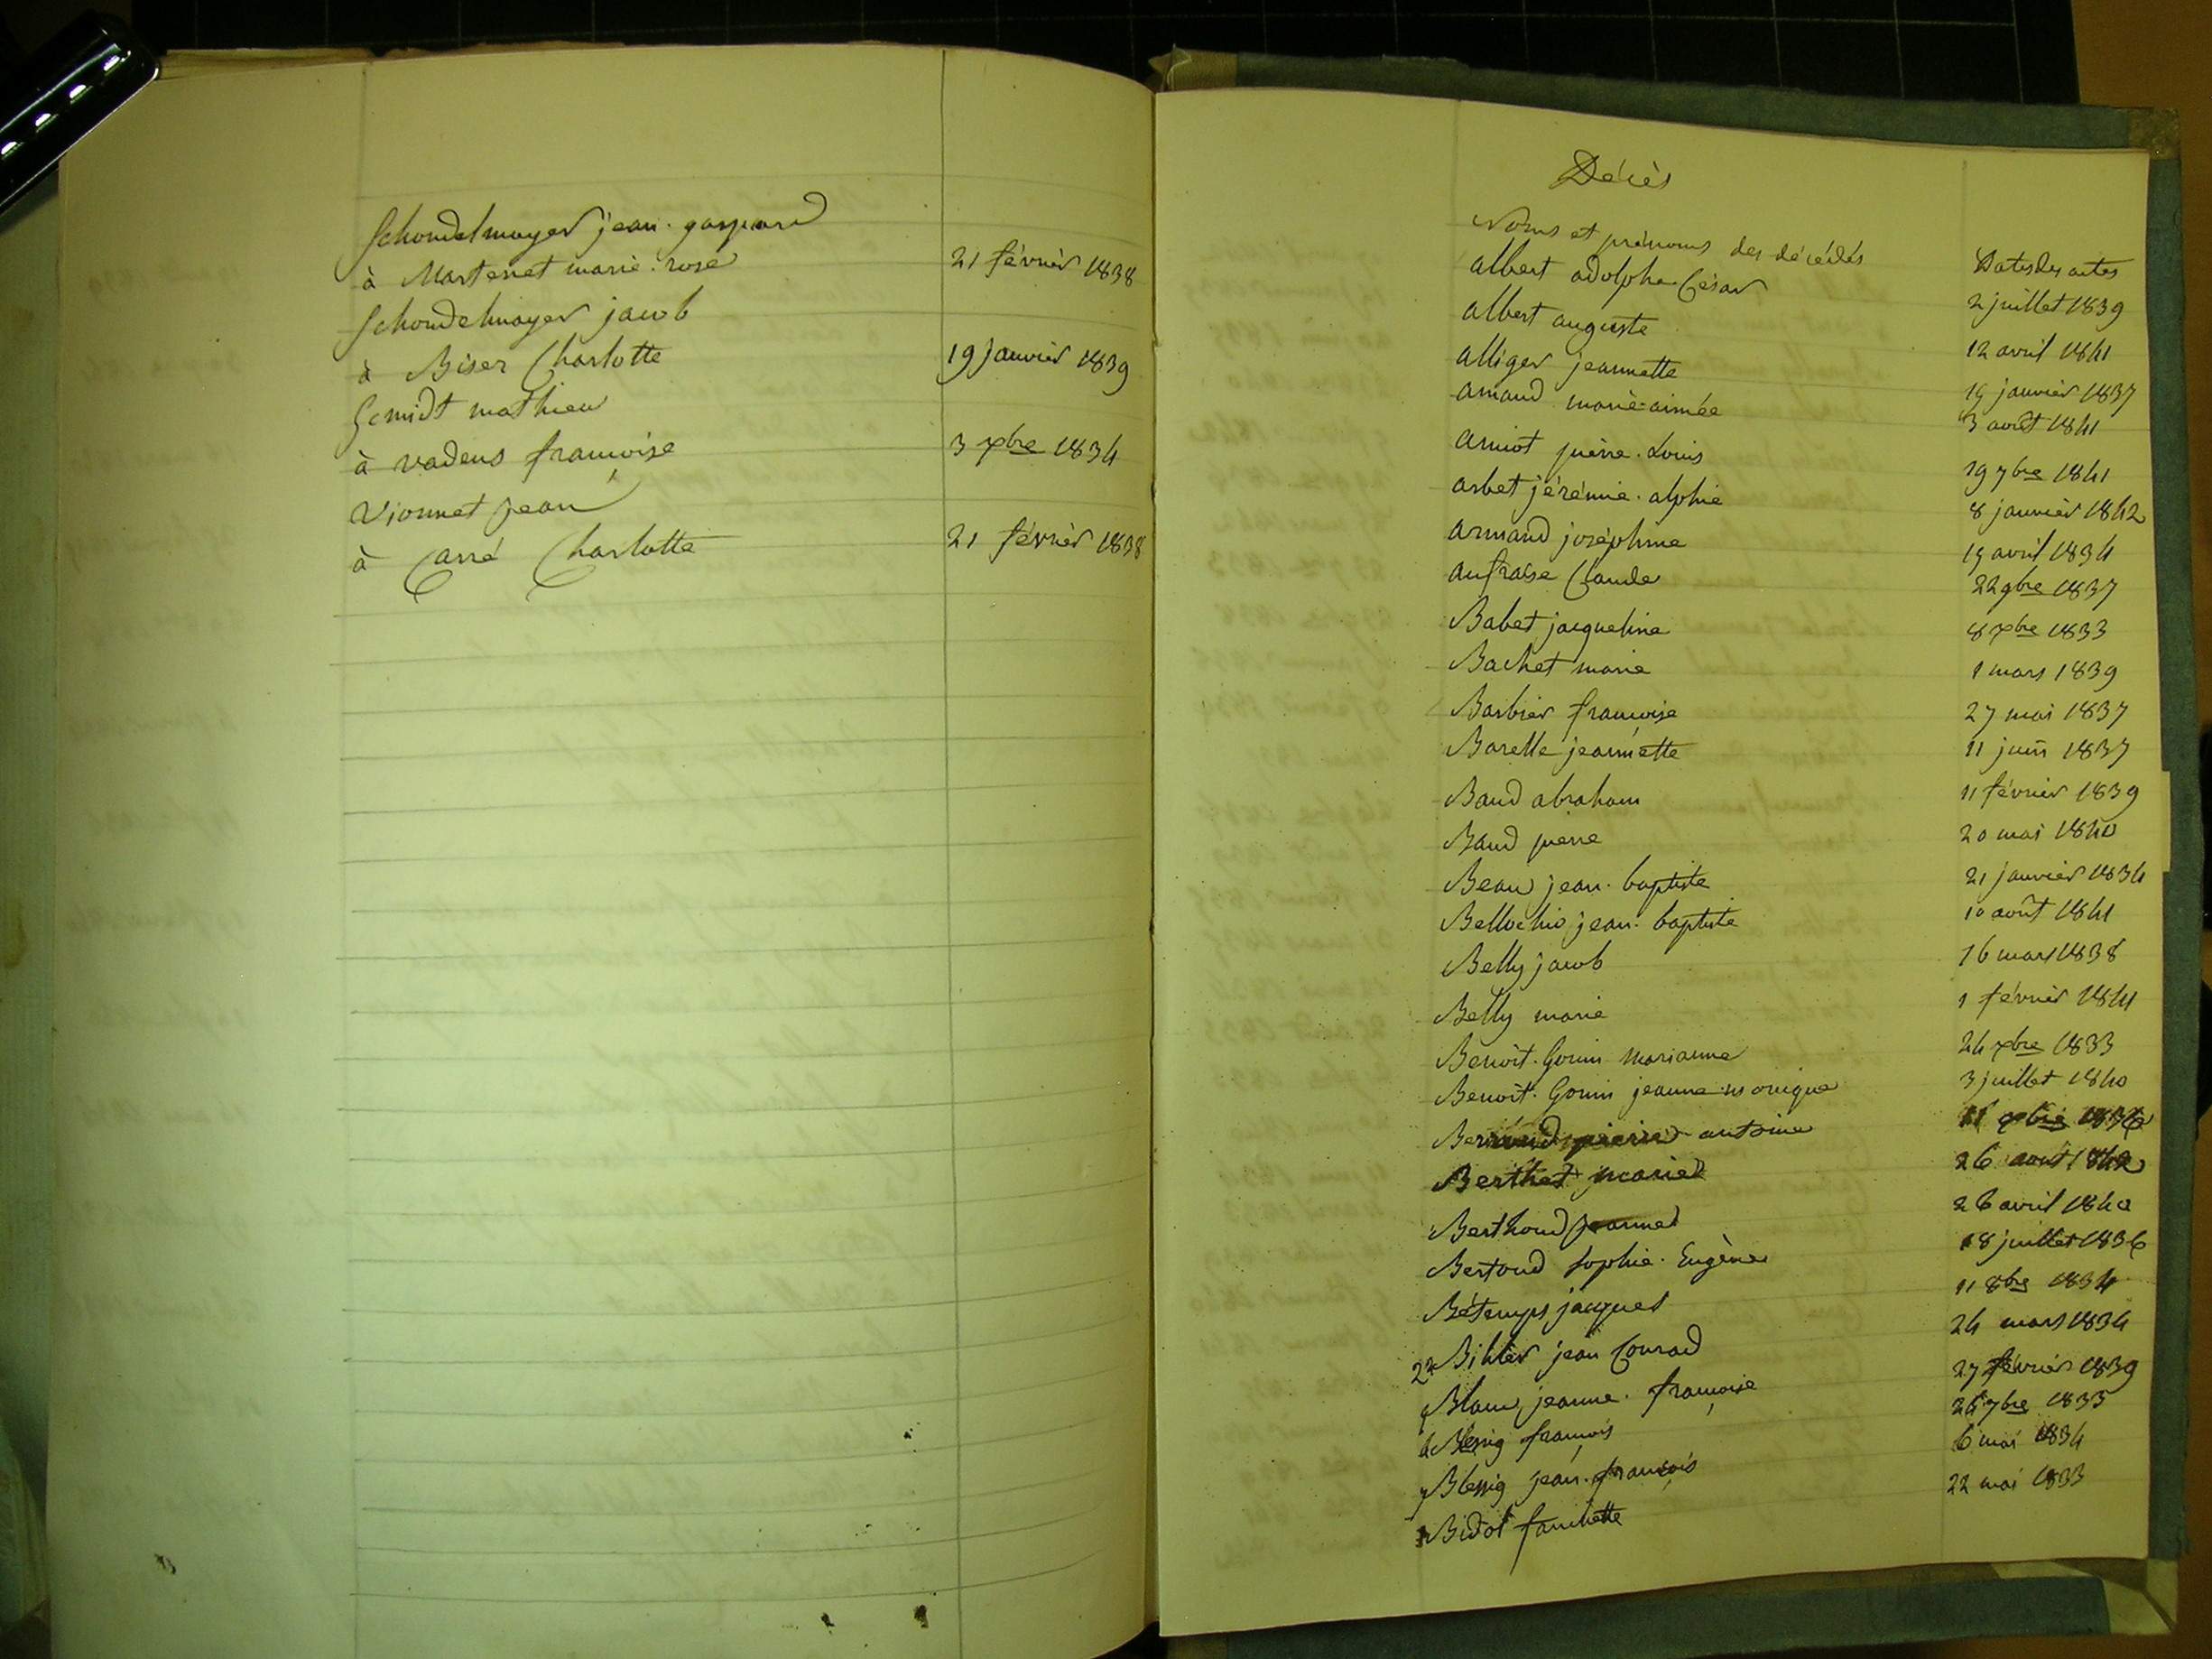 Schondelmayer jean. gaspard
à Martenet marie. rose 21 février 1838
Schondelmayer jacob
à Biser Charlotte 19 janvier 1839
Scmidt mathieu
à vadens françoise 3 xbre 1834
Vionnet Jean
à Carré Charlotte 21 février 1838
Décès
Noms et prénoms des décédés Dates des actes
albert adolphe. César 2 juillet 1839
albert auguste 12 avril 1841
alliger jeannette 19 janvier 1837
amaud marie-aimée 3 août 1841
amiot pierre. Louis 19 7bre 1841
arbet jérémie. alphie 8 janvier 1842
armand joséphine 19 avril 1834
aufraise Claude 22 9bre 1837
Babet jacqueline 8 xbre 1833
Bachet marie 1 mars 1839
Barbier françoise 27 mai 1837
Barelle jeannette 11 juin 1837
Baud abraham 11 février 1839
Baud pierre 20 mai 1840
Beau jean. baptiste 21 janvier 1834
Bellochio jean. baptiste 10 août 1841
Belly jacob 16 mars 1838
Belly marie 1 février 1841
Benoit. Gonin Marianne 24 xbre 1833
Benoit. Gonin jeanne. monique 3 juillet 1840
antoine 11 xbre 1836
Berthet marie 26 août 1842
Berthoud jeanne 26 avril 1840
Bertoud sophie. Eugène 18 juillet 1836
Bétemps jacques 11 8bre 1834
Bihler jean Conrad 24 mars 1834
Blanc jeanne. françoise 27 février 1839
Blessig françois 26 7bre 1835
Blessig jean. françois 6 mai 1834
Bidot fanchette 22 mai 1833